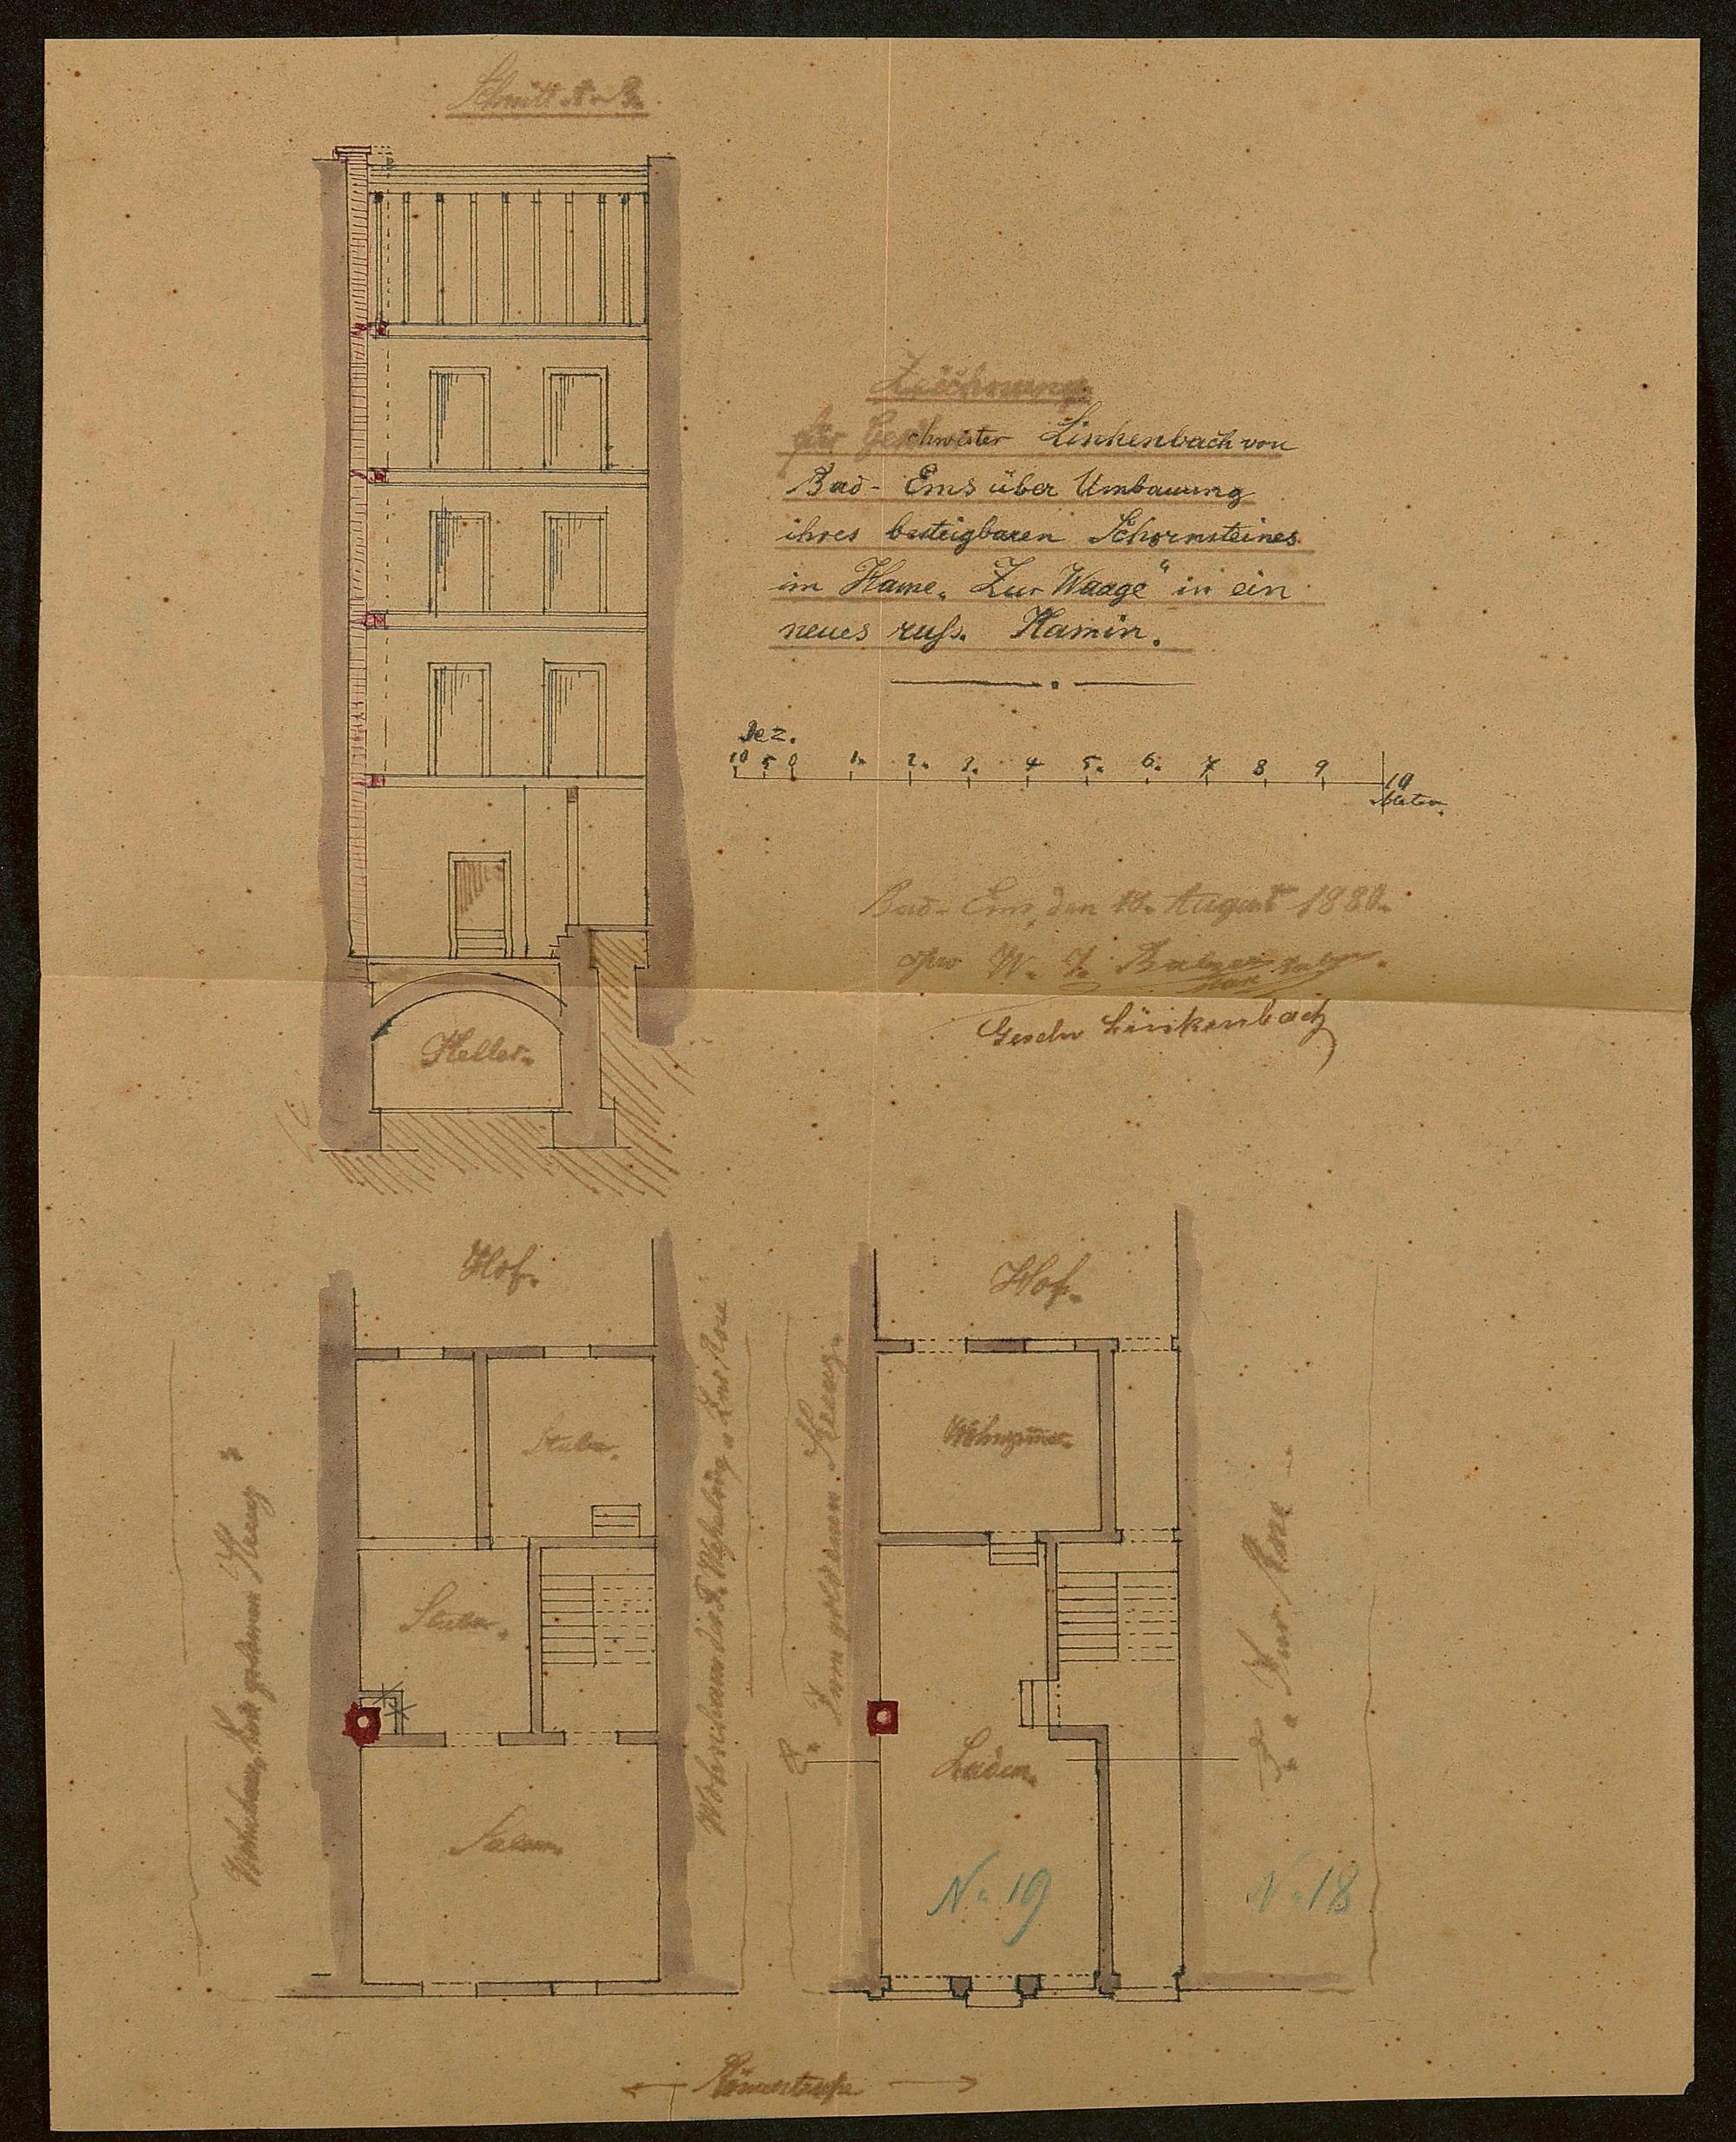 Schnitt A-B.
Zeichnung
für Geschwister Linkenbach von
Bad-Ems über Umbauung
ihres besteigbaren Schornsteines
im Hause „Zur Waage“ in ein
neues russ. Kamin.
Dez.
10 5 0 1. 2. 3. 4 5. 6. 7 8 9 10
Meter.
Bad-Ems, den 18. August 1880.
W. J. Balzer
Geschw Linkenbach
Keller.
Hof.
Hof.
Stube.
Wohnzimmer.
Stube.
Laden.
Salon.
Wohnhaus zum goldenen Kreuz
Wohnhaus des „Zur Rose
Zum goldenen Kreuz.
Zur Rose
No 19
No 18
Römerstraße